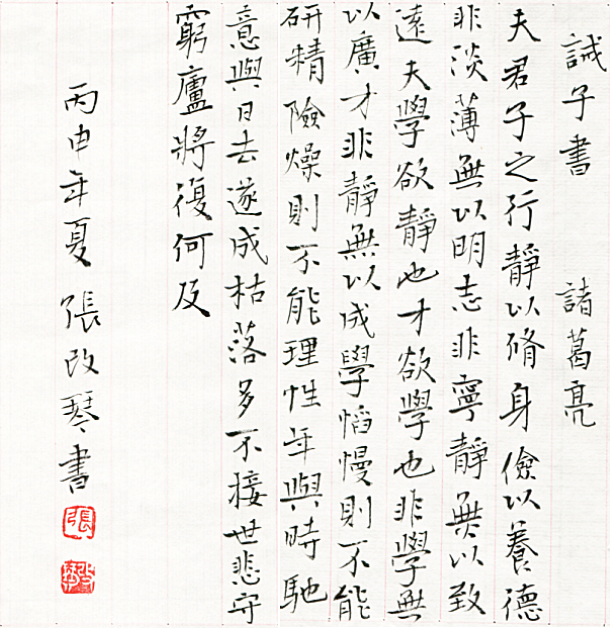 誡子書 諸葛亮
夫君子之行靜以脩身儉以養德
非淡薄無以明志非寧靜無以致
遠夫學欲靜也才欲學也非學無
以廣才非靜無以成學慆慢則不能
研精險燥則不能理性年與時馳
意與日去遂成枯落多不接世悲守
窮廬將復何及
丙申年夏張改琴書
張